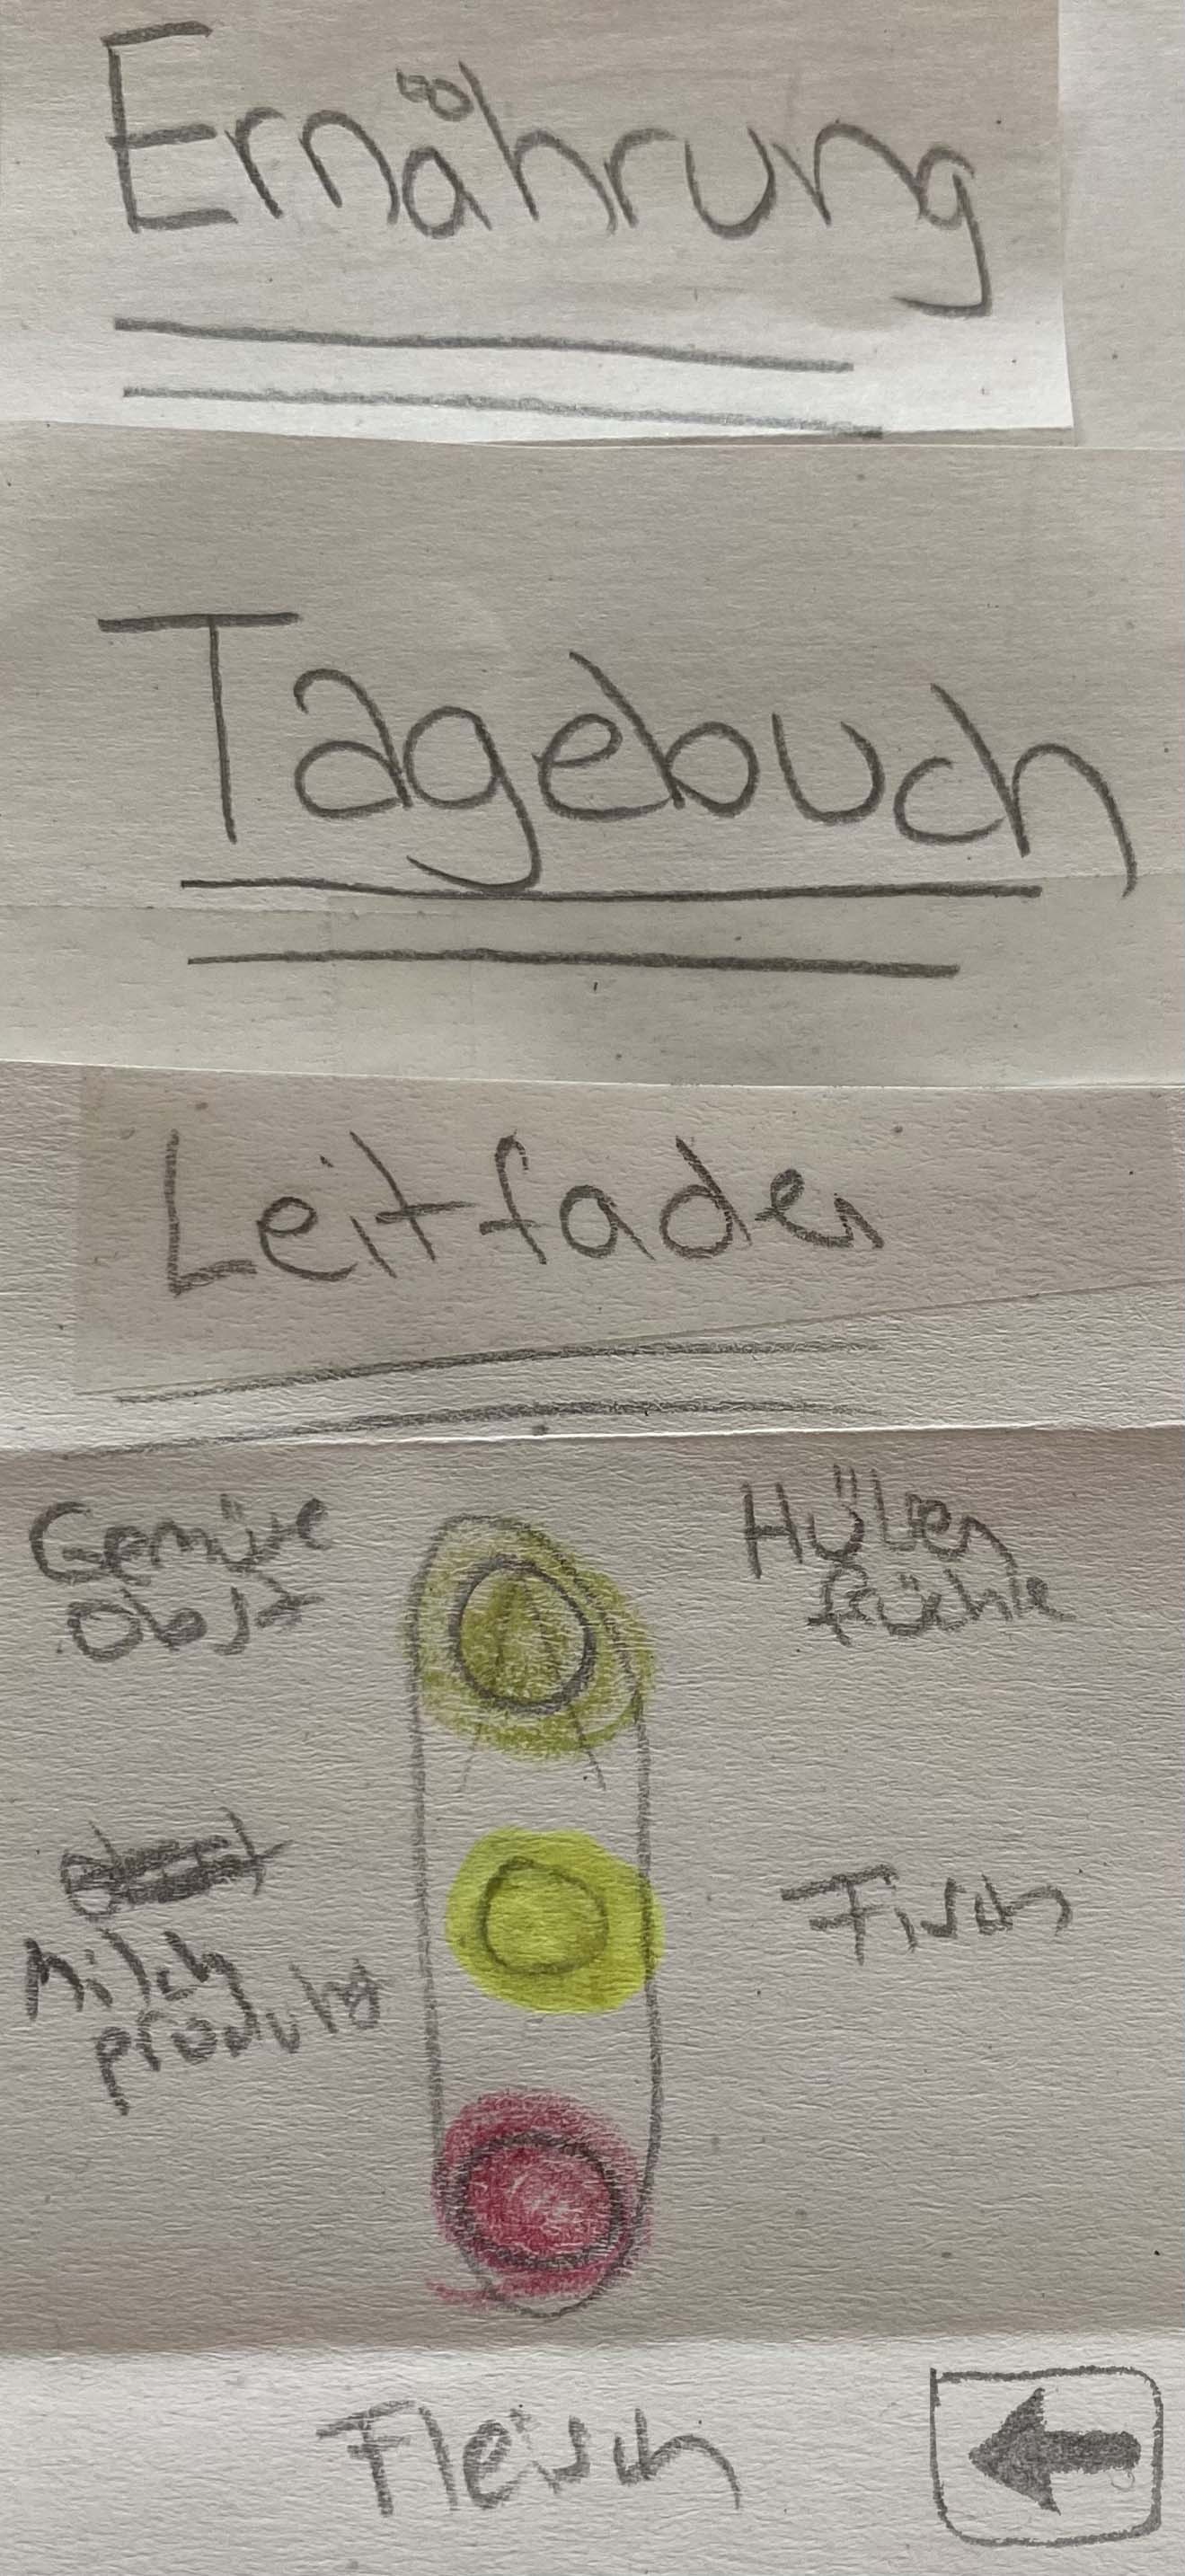 Ernährung
Tagebuch
Leitfaden
Gemüse
Obst
Hülsen
früchte
Milch
produkte
Fisch
Fleisch